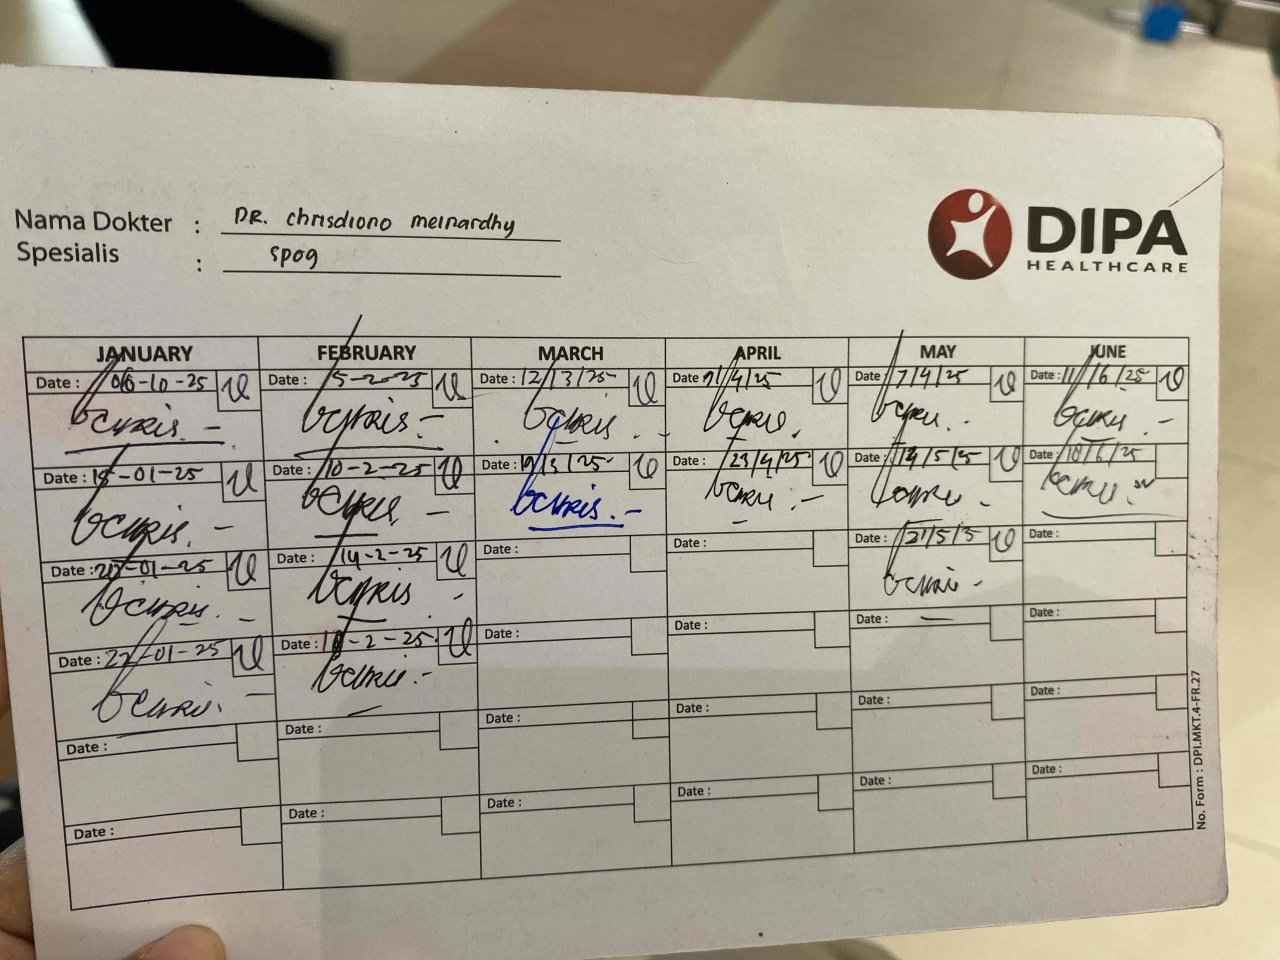 Nama Dokter : DR. chrisdiono meinardhy
Spesialis : spog
DIPA
HEALTHCARE
JANUARY FEBRUARY MARCH APRIL MAY JUNE
Date : 06-10-25 Date : 5-2-25 Date : 12/3/25 Date 21/4/25 Date : 7/4/25 Date : 11/6/25
Date : 15-01-25 Date : 10-2-25 Date : 19/3/25 Date : 23/4/25 Date : 14/5/25 Date : 18/6/25
Date : 20-01-25 Date : 14-2-25 Date : Date : Date : 21/5/25 Date :
Date : 22-01-25 Date : 18-2-25 Date : Date : Date : Date :
Date : Date : Date : Date : Date : Date :
Date : Date : Date : Date : Date : Date :
No. Form : DPI.MKT.4-FR.27